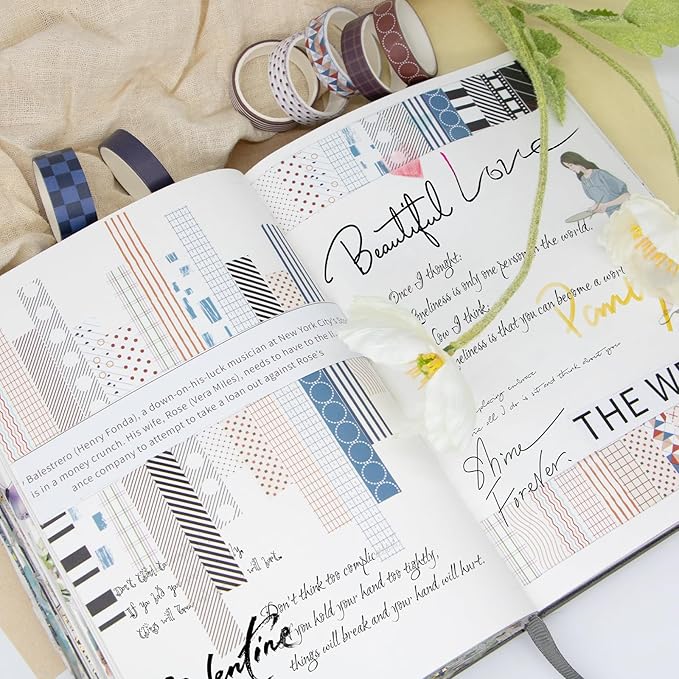 Balestrero (Henry Fonda), a down-on-his-luck musician at New York City's
is in a money crunch. His wife, Rose (Vera Miles), needs to have to the
ance company to attempt to take a loan out against Rose's
Don't think too
If you hold you
things will
you
will hurt.
Don't think too
you hold your hand too tightly,
things will break and your hand will hurt.
Valentine
Beautiful Love
Once I thought:
loneliness is only one person in the world.
Now I think:
loneliness is that you can become a
all I do is sit and think about you
THE
Shine
Forever.